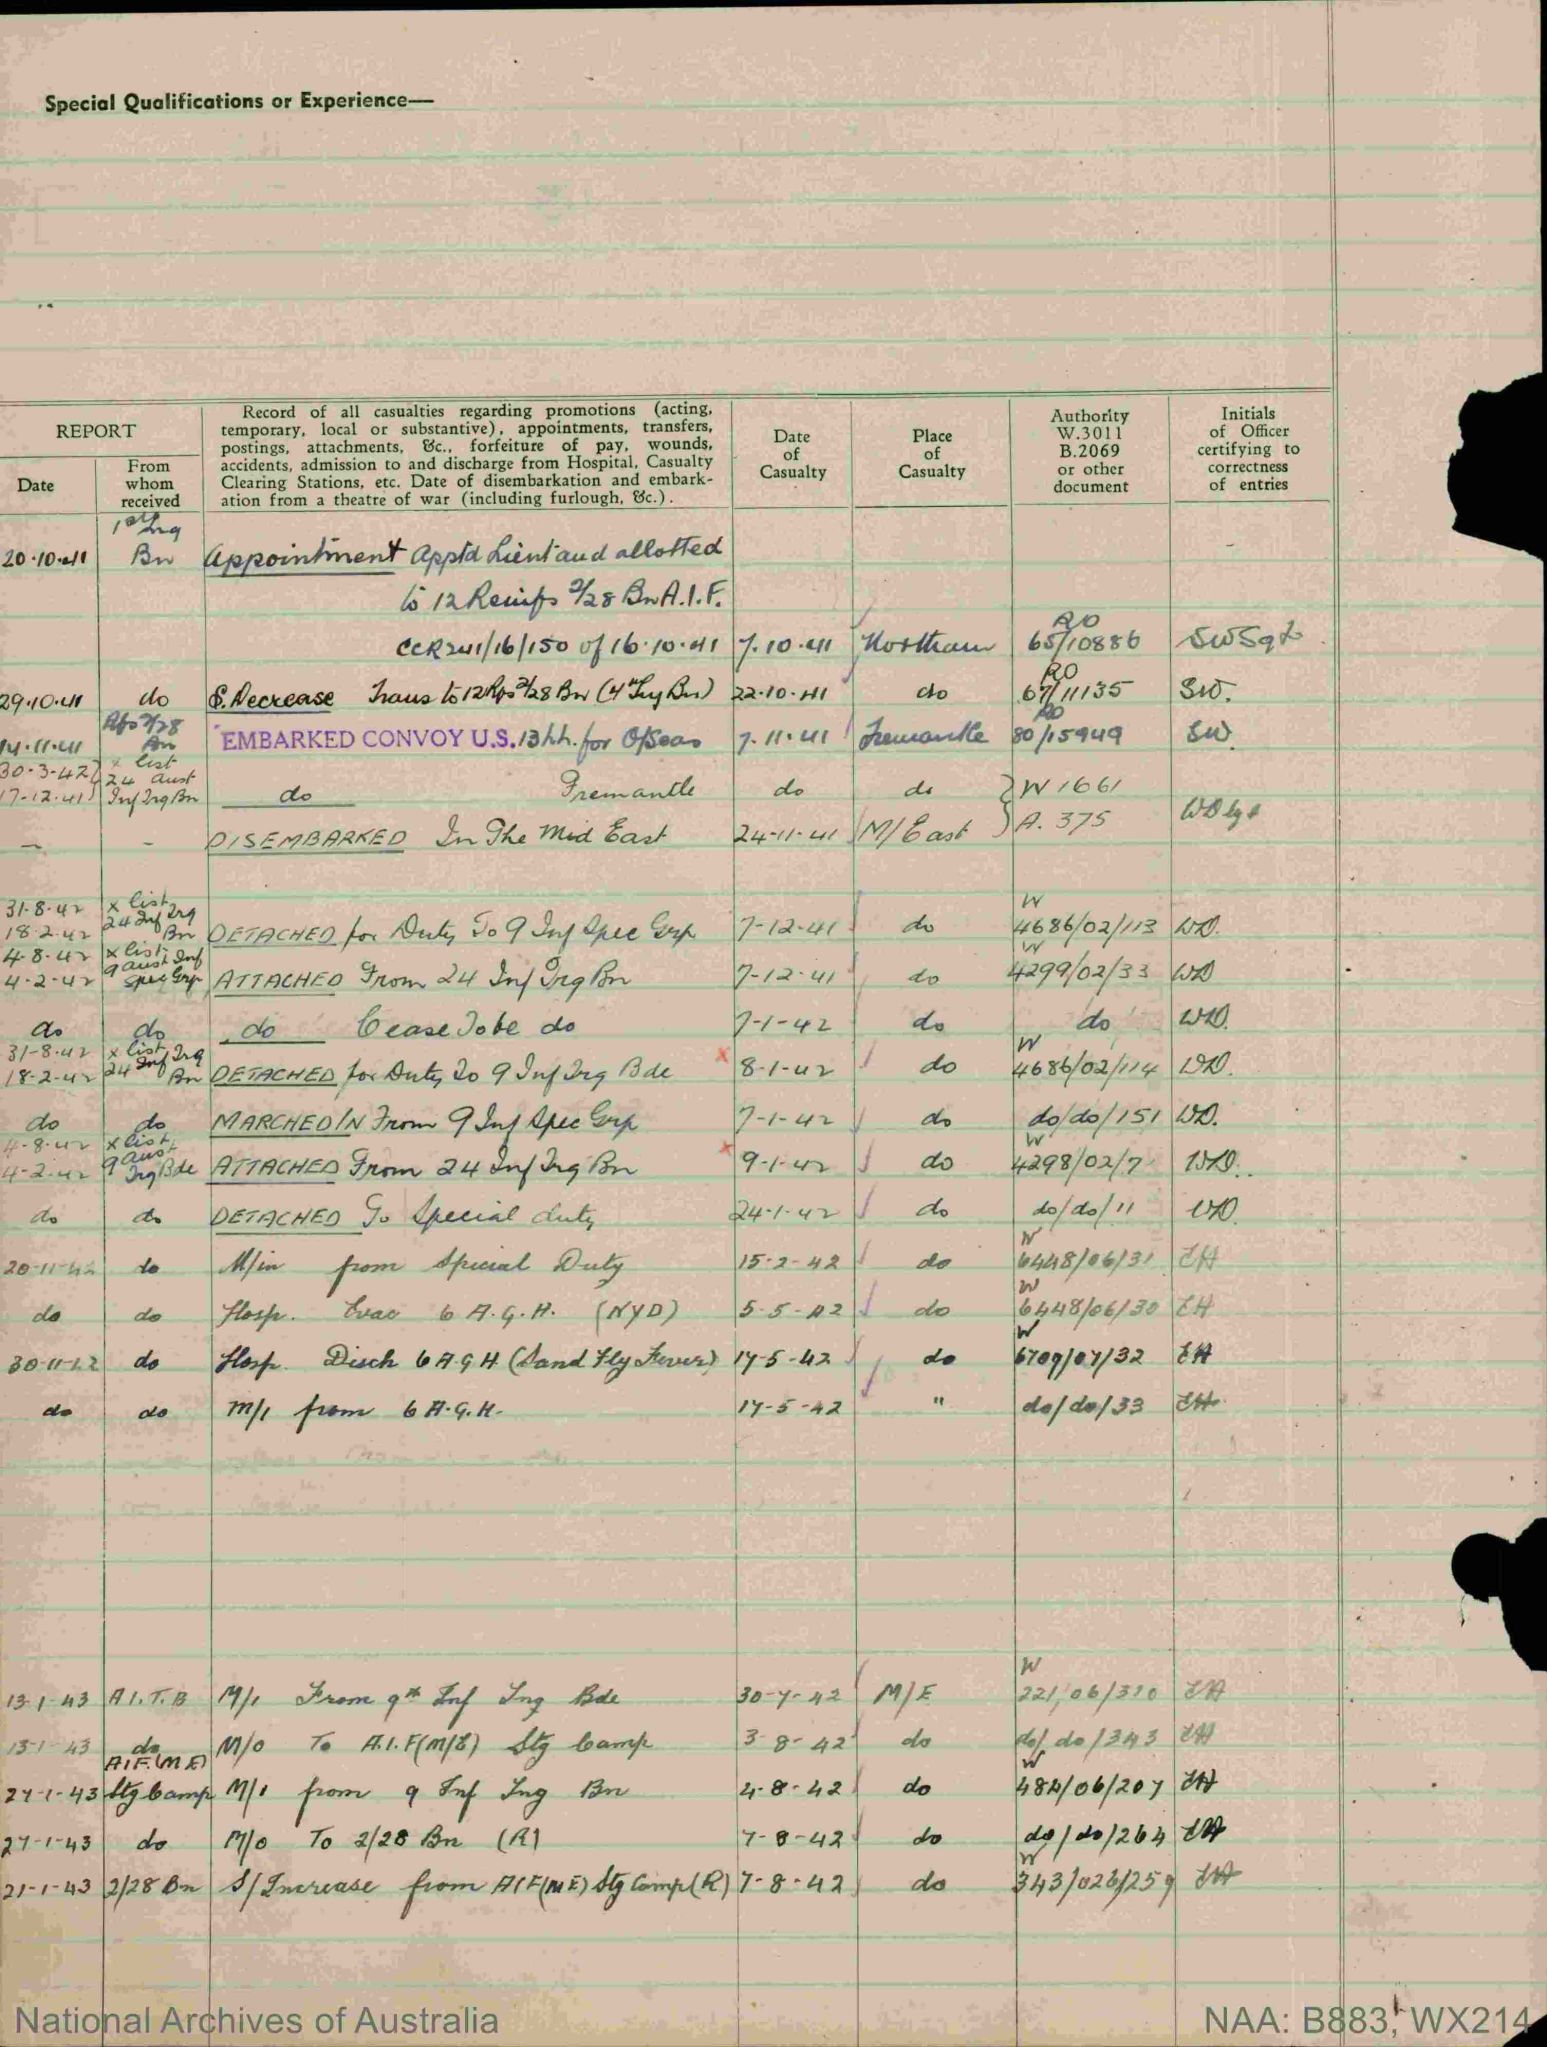 Special Qualifications or Experience—
REPORT
Date
From whom received
Record of all casualties regarding promotions (acting,
temporary, local or substantive), appointments, transfers,
postings, attachments, &c., forfeiture of pay, wounds,
accidents, admission to and discharge from Hospital, Casualty
Clearing Stations, etc. Date of disembarkation and embark-
ation from a theatre of war (including furlough, &c.).
Date of Casualty
Place of Casualty
Authority W.3011 B.2069 or other document
Initials of Officer certifying to correctness of entries
20.10.41 Bn Appointment Apptd Lieut and allotted
to 12 Reinfs 2/28 Bn A.I.F.
CCR241/16/150 of 16.10.41 7.10.41 Northam RO 65/10886
29.10.41 do S. Decrease Trans to 12 Rfs 2/28 Bn (4th Trg Bn) 22.10.41 do RO 67/11135 SW.
14.11.41 Rfs 2/28 Bn EMBARKED CONVOY U.S. 13 for O/Seas 7.11.41 Fremantle RO 80/15949 SW
30-3-42 17-12-41 x list 24 Aust Inf Trg Bn do Fremantle do do W 1661
— - DISEMBARKED In The Mid East 24-11-41 M/East A. 375
31-8-42 18-2-42 x list 24 Inf Trg Bn DETACHED for Duty To 9 Inf Spec Grp 7-12-41 do W 4686/02/113 WD.
4-8-42 4-2-42 x list 9 Aust Inf Spec Grp ATTACHED From 24 Inf Trg Bn 7-12-41 do W 4299/02/33 WD
do do do Cease To be do 7-1-42 do do WD.
31-8-42 18-2-42 x list 24 Inf Trg Bn DETACHED for Duty To 9 Inf Trg Bde x 8-1-42 do W 4686/02/114 WD.
do do MARCHED IN From 9 Inf Spec Grp 7-1-42 do do/do/151 WD.
4-8-42 4-2-42 x list 9 Aust Trg Bde ATTACHED From 24 Inf Trg Bn x 9-1-42 do W 4298/02/7 WD.
do do DETACHED To Special duty 24-1-42 do do/do/11 WD.
20-11-42 do M/in from Special Duty 15-2-42 do W 6448/06/31 EH
do do Hosp. Evac 6 A.G.H. (NYD) 5-5-42 do W 6448/06/30 EH
30-11-42 do Hosp. Disch 6 A G H (Sand Fly Fever) 17-5-42 do W 6709/07/32 EH
do do M/I from 6 A.G.H. 17-5-42 " do/do/33 EH
13-1-43 A I.T.B M/I From 9th Inf Trg Bde 30-7-42 M/E W 221/06/310 EH
13-1-43 do M/O To A.I.F (M/E) Stg Camp 3-8-42 do do/do/343 EH
27-1-43 AIF.(ME) Stg Camp M/I from 9 Inf Trg Bn 4-8-42 do W 484/06/207 EH
27-1-43 do M/O To 2/28 Bn (R) 7-8-42 do do/do/264 EH
21-1-43 2/28 Bn S/Increase from AIF(ME) Stg Camp (R) 7-8-42 do W 343/026/259 EH
National Archives of Australia
NAA: B883, WX214